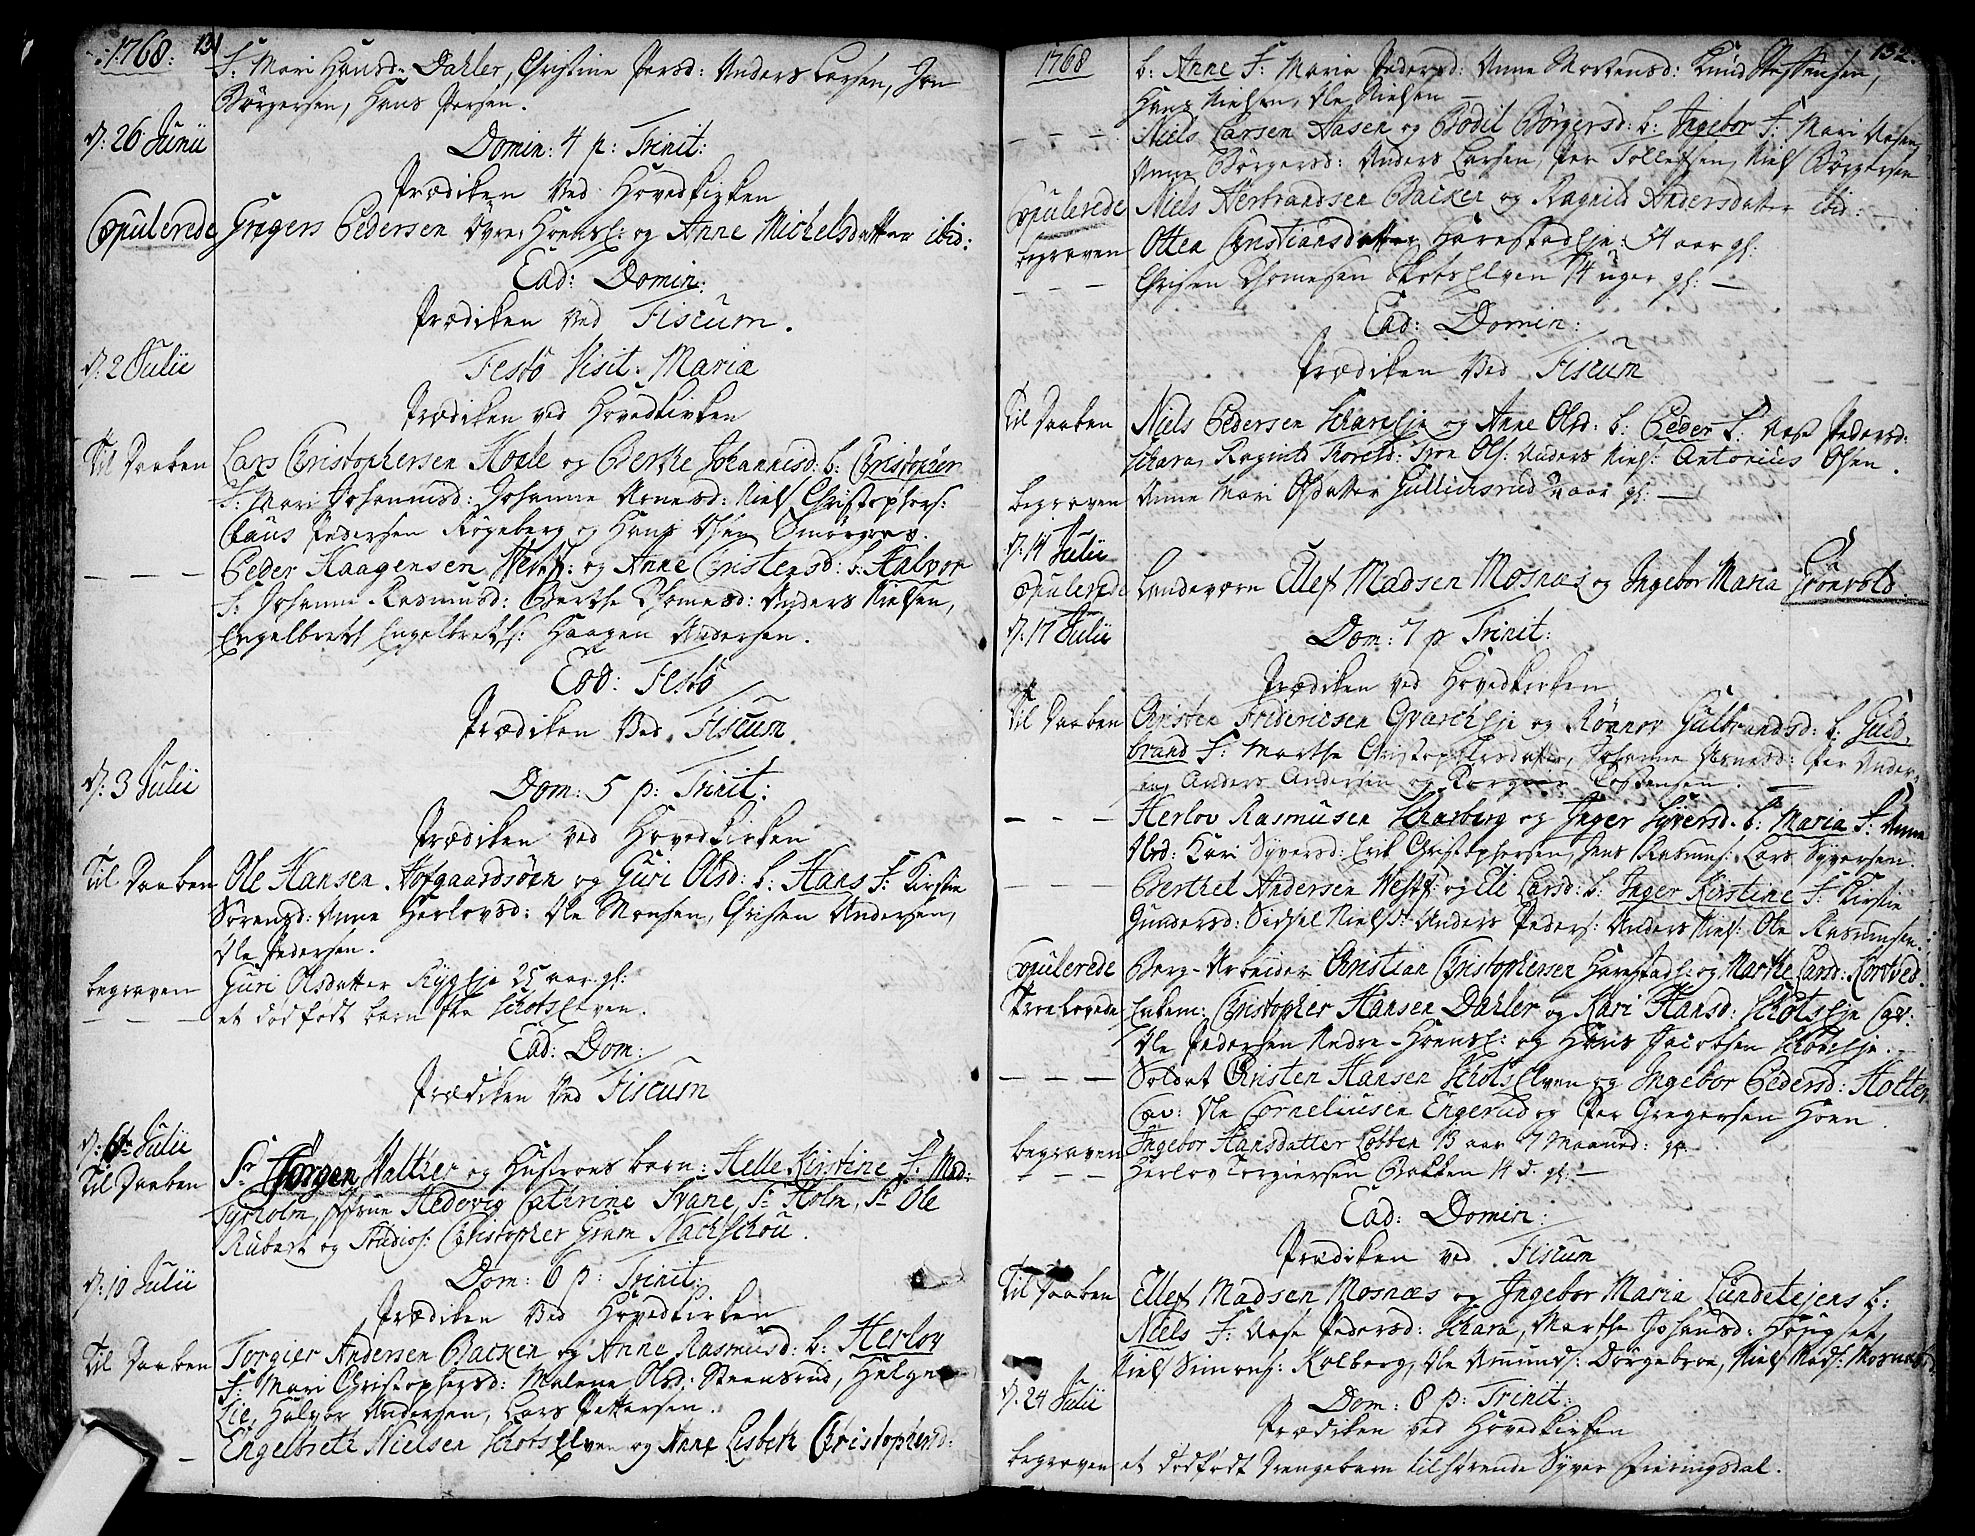 1768. 131
F: Mari Hansd: Dahler, Christine Persd: Anders Larsen, Jon
Börgersen, Hans Persen.
D: 26 Junii Domin: 4 p: Trinit:
Prædiken Ved Hovedkirken
Copulerede Gregers Pedersen Øvre Hoensl: og Anne Michelsdatter ibid:
Ead: Domin:
Prædiken Ved Fiscum.
D: 2 Julii Festo Visit. Maria
Prædiken ved Hovedkirken
Til Daaben Lars Christophersen Hoele og Berthe Johannisd: b: Christopher
F: Mari Johannisd: Johanne Arnesd: Niels Christophers:
Claus Pedersen Rögeberg og Hans Olsen Smörgrav.
— — — Peder Haagensen Vestf: og Anne Christensd: b: Halvor
F: Johanne Rasmusd: Berthe Thomesd: Anders Nielsen,
Engelbreth Engelbreths: Haagen Andersen.
Eod: Festo
Prædiken Ved Fiscum.
D: 3 Julii Dom: 5 p: Trinit:
Prædiken ved Hovedkirken
Til Daaben Ole Hansen Hofgaardsöen og Guri Olsd: b: Hans F: Kirstin
Sörensd: Anne Herlovsd: Ole Monsen, Christen Andersen,
Ole Pedersen.
begraven Guri Olsdatter Rygeje 25 aar gl:
— — — et dödfödt barn fra Schotselven.
Ead: Dom:
Prædiken Ved Fiscum
D: 6te Julii
Til Daaben Sr Jörgen Valther og Hustroes barn: Helle Kirstine F: Mad:
Tyrholm, Jfrue Hedevig Cathrine Svane, Sr Holm, Sr Ole
Rubert og Studios: Christopher Gram Nachschou.
D: 10 Julii Dom: 6 p: Trinit:
Prædiken Ved Hovedkirken
Til Daaben Torgier Andersen Backen og Anne Rasmusd: b: Herlov
F: Mari Christophersd: Malene Olsd: Steensrud, Helge
Lie, Halvor Andersen, Lars Pettersen.
— Engelbreth Nielsen Schotselven og Anne Lisbeth Christophersd:
1768 132
b: Anne F: Marie Pedersd: Anne Mortensd: Knud Steffensen,
Hans Nielsen, Ole Nielsen —
— — — Niels Larsen Aasen og Bodil Börgersd: b: Ingebor F: Mari Aasen,
Anne Börgersd: Anders Larsen, Per Tollefsen, Niels Börgersen
Copulerede Niels Herbrandsen Backen og Ragnild Andersdatter ibid: —
begraven Ottea Christiansdatter Harestadeje: 54 aar gl:
— — — Christen Thomesen Schotselven 14 uger gl: —
Ead: Domin:
Prædiken Ved Fiscum
Til Daaben Niels Pedersen Schareje og Anne Olsd: b: Peder F: Aase Pedersd:
Schara, Ragnild Thoresd: Tron Ols: Anders Niels: Antonius Olsen.
begraven Anne Mari Olsdatter Gullichsrud 2 aar gl: —
D: 14 Julii
Copulerede Landeværn Ellef Madsen Mosnæs og Ingebor Maria Grönvold.
D: 17 Julii Dom: 7 p Trinit:
Prædiken ved Hovedkirken
Til Daaben Christen Fridericsen Gvarcheje og Rönnov Gulbrandsd: b: Guld-
brand F: Marthe Christophersdatter, Johanne Arnesd: Per Anders-
en, Anders Andersen og Torgier Tostensen. —
— — — Herlov Rasmusen Scharberg og Inger Syversd: b: Maria F: Anne
Olsd: Kari Syversd: Erik Christophersen, Jens Rasmus: Lars Syversen.
— — — Berthel Andersen Vestf: og Eli Larsd: b: Inger Kirstine F: Kirstin
Gundersd: Sidsel Nielsd: Anders Peders: Anders Niels: Ole Rasmusen.
Copulerede Berg-Arbeider Christian Christophersen Harestads: og Marthe Larsd: Kortved.
Troelovede Enkem: Christopher Hansen Dahler og Kari Hansd: Schotseje Cav:
Ole Pedersen Nedre-Hoensl: og Hans Jacobsen Schotseje.
— — — Soldat Christen Hansen Schotselven og Ingebor Pedersd: Holter
Cav: Ole Corneliusen Engerud og Per Gregersen Hoen.
begraven Ingebor Hansdatter Lobben 13 aar 7 Maaned: gl:
— — — Herlov Torgiersen Bakken 14 d. gl: —
Ead: Domin:
Prædiken ved Fiscum
Til Daaben Ellef Madsen Mosnæs og Ingebor Maria Lundetejens b:
Niels F: Aase Pedersd: Schara, Marthe Johansd:
Niels Simons: Kolberg, Ole Amunds: Dörgebroe, Niels Mads: Mosnæs
D: 24 Julii Dom: 8 p: Trinit:
Prædiken ved Hovedkirken
begraven et dödfödt Drengebarn tilhörende Syver Fieringsdal.